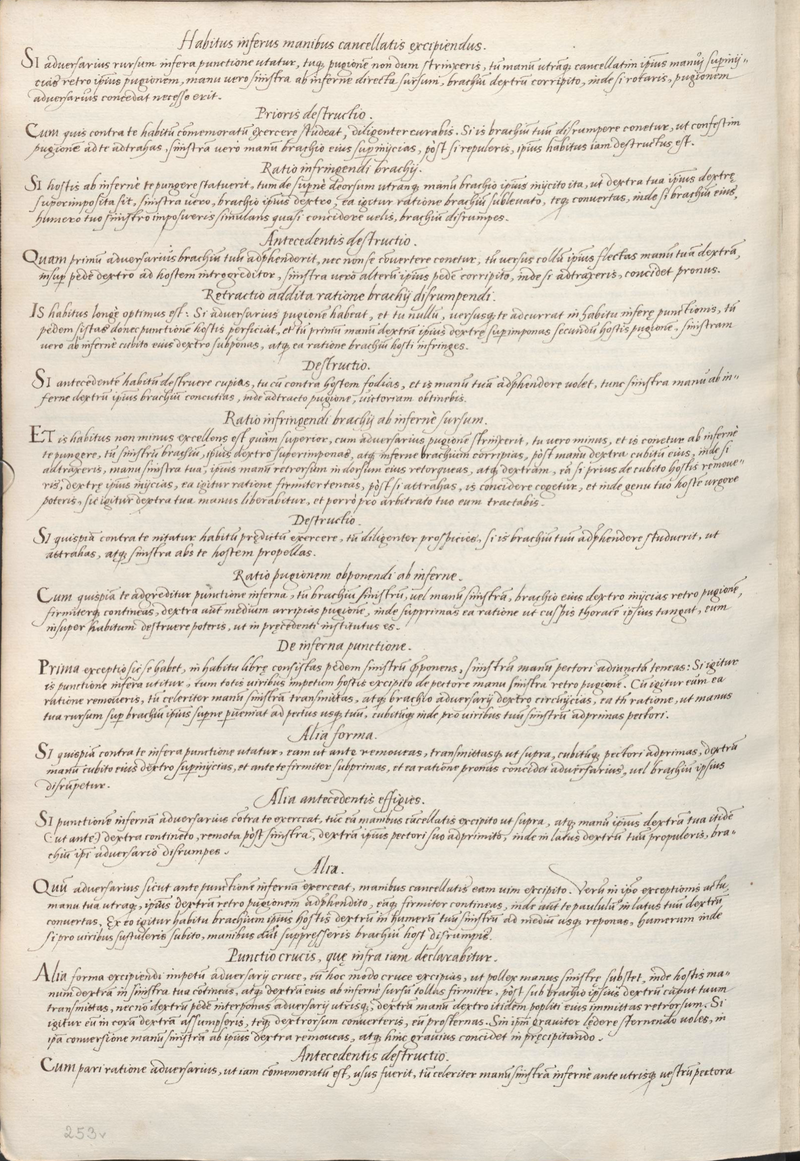 Habitus inferus manibus cancellatis excipiendus.
SI adversarius rursum infera punctione utatur, tuq; pugionē non dum strinxeris, tu manu utraq; cancellatim ipsius manuj supinij=
cias retro ipsius pugionem, manu vero sinistra ab inferne directa sursum, brachiū dextrū corripito, inde si rotaris, pugionem
adversarius concedat necesse erit.
Prioris destructio.
Cum quis contra te habitū comemoratū exercere studeat, diligenter curabis. Si is brachiū tuū disrumpere conetur, ut confestim
pugionē ad te adtrahas, sinistrā vero manū brachio eius supinijcias, pòst si repuleris, ipsius habitus iam destructus est.
Ratio infringendi brachij.
SI hostis ab infernè te pungere statuerit, tum de supnè deorsum utranq; manū brachio ipsius inijcito ita, ut dextra tua ipsius dextrę
superimposita sit, sinistra vero, brachio ipsius dextro, ea igitur ratione brachiū sublevato, teq; convertas, inde si brachiū eius,
humero tuo sinistro imposueris simulans quasi concidere velis, brachiū disrumpes.
Antecedentis destructio.
Quam primū adversarius brachiū tuū adphenderit, nec non se cōvertere conetur, tū versus collū ipsius flectas manū tuā dextrā,
insup pede dextro ad hostem introgreditor, sinistra vero alterū ipsius pedē corripito, inde si adtraxeris, concidet pronus.
Retractio addita ratione brachij disrumpendi.
IS habitus longè optimus est: Si adversarius pugionē habeat, et tu nullū, versusq; te adcurrat in habitu inferę punctionis, tā
pedem sistas donec punctionē hostis perficiat, et tu primū manū dextrā ipsius dextrę supimponas secundū hostis pugionē. sinistram
vero ab infernè cubito eius dextro subponas, atq; ea ratione brachiū hosti infringes.
Destructio.
SI antecedentē habitū destruere cupias, tu cū contra hostem fodias, et is manū tuā adphendere volet, tunc sinistra manu ab in=
ferne dextrū ipsius brachiū concutias, inde adtracto pugione, victoriam obtinebis.
Ratio infringendi brachij ab infernè sursum.
ET is habitus non minus excellens est quàm superior, cum adversarius pugionē strinxerit, tu vero minus, et is conetur ab infernè
te pungere, tu sinistrū brachiū, ipsius dextro superimponas, atq; inferne brachium corripias, pòst manū dextrā cubitū eius, inde si
adtraxeris, manu sinistra tua, ipsius manū retrorsum in dorsum eius retorqueas, atq; dextram, eā si prius de cubito hostis remove=
ris, dextrę ipsius inijcias, ea igitur ratione firmiter teneas, pòst si attrahas, is concidere cogetur, et inde genu tuo hostē urgere
poteris, sic igitur dextra tua manus liberabitur, et porrò pro arbitrato tuo eum tractabis.
Destructio.
SI quispiā contra te nitatur habitū prędictū exercere, tu diligenter prospicies, si is brachiū tuū adphendere studuerit, ut
attrahas, atq; sinistra abs te hostem propellas.
Ratio pugionem obponendi ab inferne.
Cum quispiā te adgreditur punctione inferna, tu brachiū sinistrū, vel manū sinistrā, brachio eius dextro inijcias retro pugionē,
firmiterq; contineas, dextra aūt medium arripias pugionē, inde supprimas ea ratione ut cuspis thoracē ipsius tangat, eum
insuper habitum destruere poteris, ut in pręcedenti institutus es.
De inferna punctione.
Prima exceptio sic se habet, in habitu librę consistas pedem sinistrū pponens, sinistrā manū pectori adiunctā teneas: Si igitur
is punctione infera utitur, tum totis viribus impetum hostis excipito de pectore manu sinistra retro pugionē. Cū igitur eam ea
ratione removeris, tū celeriter manū sinistrā transmittas, atq; brachio adversarij dextro circuijcias, ea tñ ratione, ut manus
tua rursum sup brachiū ipsius supne pueniat ad pectus usq; tuū, cubitūq; inde pro viribus tuū sinistrū adprimas pectori.
Alia forma.
SI quispiā contra te infera punctione utatur, eam ut ante removeas, transmittasq; ut supra, cubitūq; pectori adprimas, dextrā
manū cubito eius dextro supinijcias, et ante te firmiter subprimas, et ea ratione pronus concidet adversarius, vel brachiū ipsius
disrūpetur.
Alia antecedentis effigies.
SI punctionē infernā adversarius cōtra te exerceat, tūc eā manibus cācellatis excipito ut supra, atq; manū ipsius dextrā tua itidē
(ut ante) dextra contineto, remota pòst sinistra, dextrā ipsius pectori suo adprimito, inde in latus dextrū tuū propuleris, bra=
chiū ipi adversario disrumpes.
Alia.
Quū adversarius sicut ante punctionē infernā exerceat, manibus cancellatis eam vim excipito. Verū in ipō exceptionis actu,
manu tua utraq; ipsius dextrā retro pugionem adphendito, eāq; firmiter contineas, inde aūt te paululū in latus tuū dextrū
convertas. Ex eo igitur habitu brachium ipsius hostis dextrū in humerū tuū sinistrū ad mediū usq; reponas, humerum inde
si pro viribus sustuleris subito, manibus aūt suppresseris brachiū hosti disrumpis.
Punctio crucis, quę infra iam declarabitur.
Alia forma excipiendi impetū adversarij cruce, eū hoc modo cruce excipias, ut pollex manus sinistrę substet, inde hostis ma=
num dextrā in sinistra tua cōtineas, atq; dextrā eius ab infernè sursū tollas firmiter, pòst sub brachio ipsius dextrū caput tuum
transmittas, necnō dextrū pedē interponas adversarij utrisq;, dextrā manū dextro itidem popliti eius immittas retrorsum. Si
igitur eū in coxā dextrā assumpseris, teq; dextrorsum converteris, eū prosternas. Sin ipm graviter lędere sternendo voles, in
ipā conversione manū sinistrā ab ipsius dextra removeas, atq; hinc gravius concidet in pręcipitando.
Antecedentis destructio.
Cum pari ratione adversarius, ut iam comemoratū est, usus fuerit, tū celeriter manū sinistrā infernè ante utrisq; vestrū pectora
253v